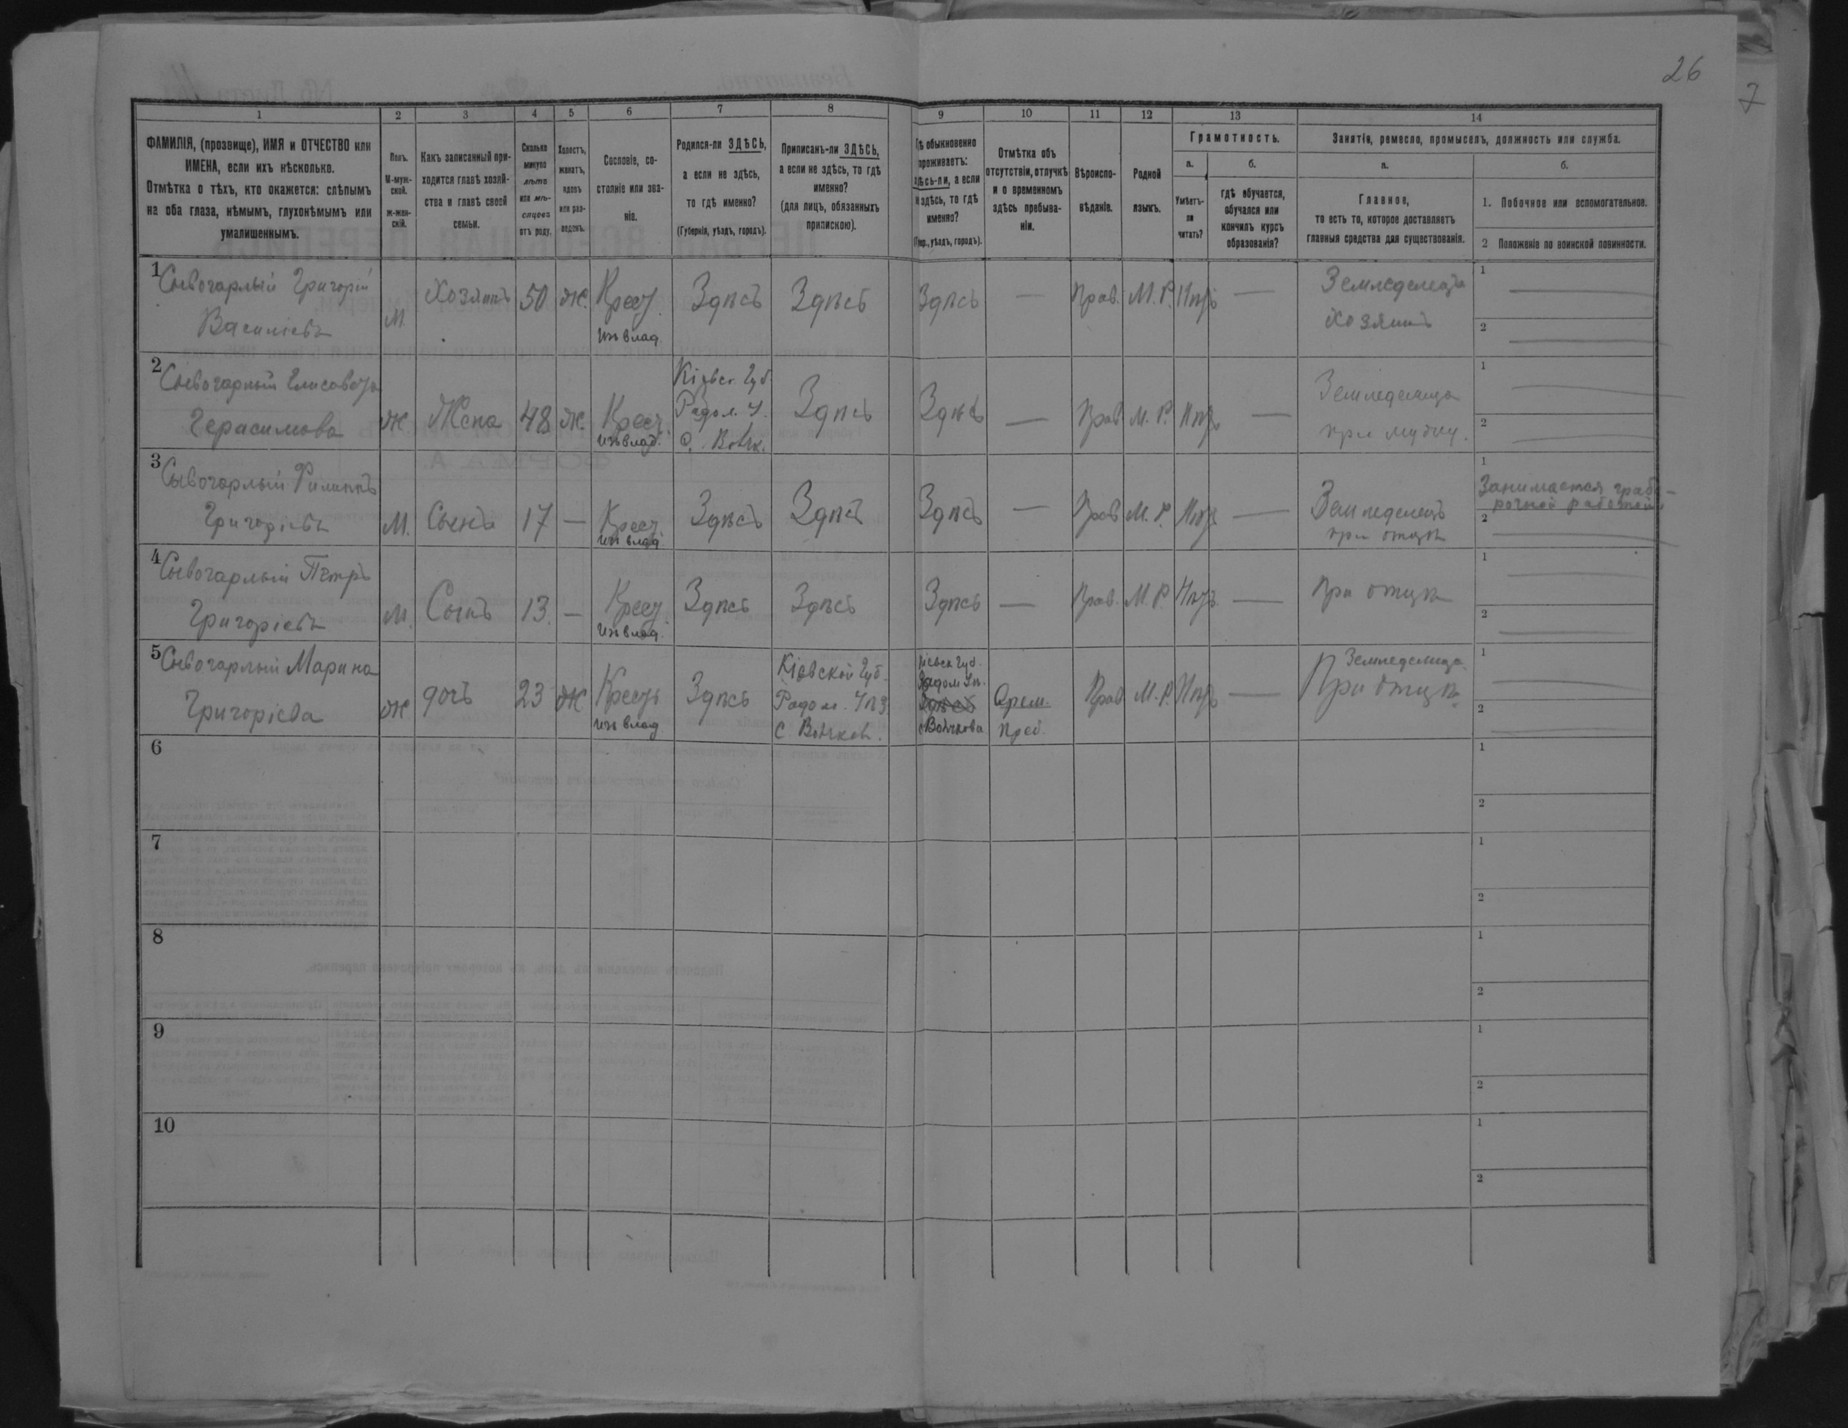 26
7
1 2 3 4 5 6 7 8 9 10 11 12 13 14
ФАМИЛІЯ, (прозвище), ИМЯ и ОТЧЕСТВО или
ИМЕНА, если ихъ нѣсколько.
Отмѣтка о тѣхъ, кто окажется: слѣпымъ
на оба глаза, нѣмымъ, глухонѣмымъ или
умалишеннымъ.
Полъ.
М-муж-
ской.
ж-жен-
скій.
Какъ записанный при-
ходится главѣ хозяй-
ства и главѣ своей
семьи.
Сколько
минуло
лѣтъ
или мѣ-
сяцевъ
отъ роду.
Холостъ,
женатъ,
вдовъ
или раз-
веденъ.
Сословіе, со-
стояніе или зва-
ніе.
Родился-ли ЗДѢСЬ,
а если не здѣсь,
то гдѣ именно?
(Губернія, уѣздъ, городъ).
Приписанъ-ли ЗДѢСЬ,
а если не здѣсь, то гдѣ
именно?
(для лицъ, обязанныхъ
припискою).
обыкновенно
проживаетъ:
здѣсь-ли, а если
не здѣсь, то гдѣ
именно?
(Губ., уѣздъ, городъ).
Отмѣтка объ
отсутствіи, отлучкѣ
и о временномъ
здѣсь пребыва-
ніи.
Вѣроиспо-
вѣданіе.
Родной
языкъ.
Грамотность.
а.
Умѣетъ-
ли
читать?
б.
гдѣ обучается,
обучался или
кончилъ курсъ
образованія?
Занятіе, ремесло, промыселъ, должность или служба.
а.
Главное,
то есть то, которое доставляетъ
главныя средства для существованія.
б.
1. Побочное или вспомогательное.
2 Положеніе по воинской повинности.
1 Сывогарлый Григорій
Василіевъ
М
Хозяинъ
50
Ж.
Крест.
изъ влад.
Здѣсь
Здѣсь
Здѣсь
—
Прав.
М. Р.
Нѣтъ
—
Земледелецъ
Хозяинъ
1 —
2 —
2 Сывогарлый Елисавета
Герасимова
Ж
Жена
48
Ж.
Крест.
изъ влад.
Кіевск. Губ.
Радом. У.
с.
Здѣсь
Здѣсь
—
Прав.
М. Р.
Нѣтъ
—
Земледелица
при мужу.
1 —
2 —
3 Сывогарлый Филиппъ
Григоріевъ
М.
Сынъ
17
—
Крест.
изъ влад.
Здѣсь
Здѣсь
Здѣсь
—
Прав.
М. Р.
Нѣтъ
—
Земледелецъ
при отцѣ
1
Занимается
работой
2 —
4 Сывогарлый Петръ
Григоріевъ
М.
Сынъ
13.
—
Крест.
изъ влад.
Здѣсь
Здѣсь
Здѣсь
—
Прав.
М. Р.
Нѣтъ
—
При отцѣ
1 —
2 —
5 Сывогарлый Марина
Григоріева
Ж
дочь
23
Ж
Крест.
изъ влад.
Здѣсь
Кіевской Губ.
Радом. Уѣз.
с
Кіевск Губ.
Радом Уѣ.
Здѣсь
Врем.
Преб.
Прав.
М. Р.
Нѣтъ
—
Земледелица
При отцѣ
1 —
2 —
6
1
2
7
1
2
8
1
2
9
1
2
10
1
2